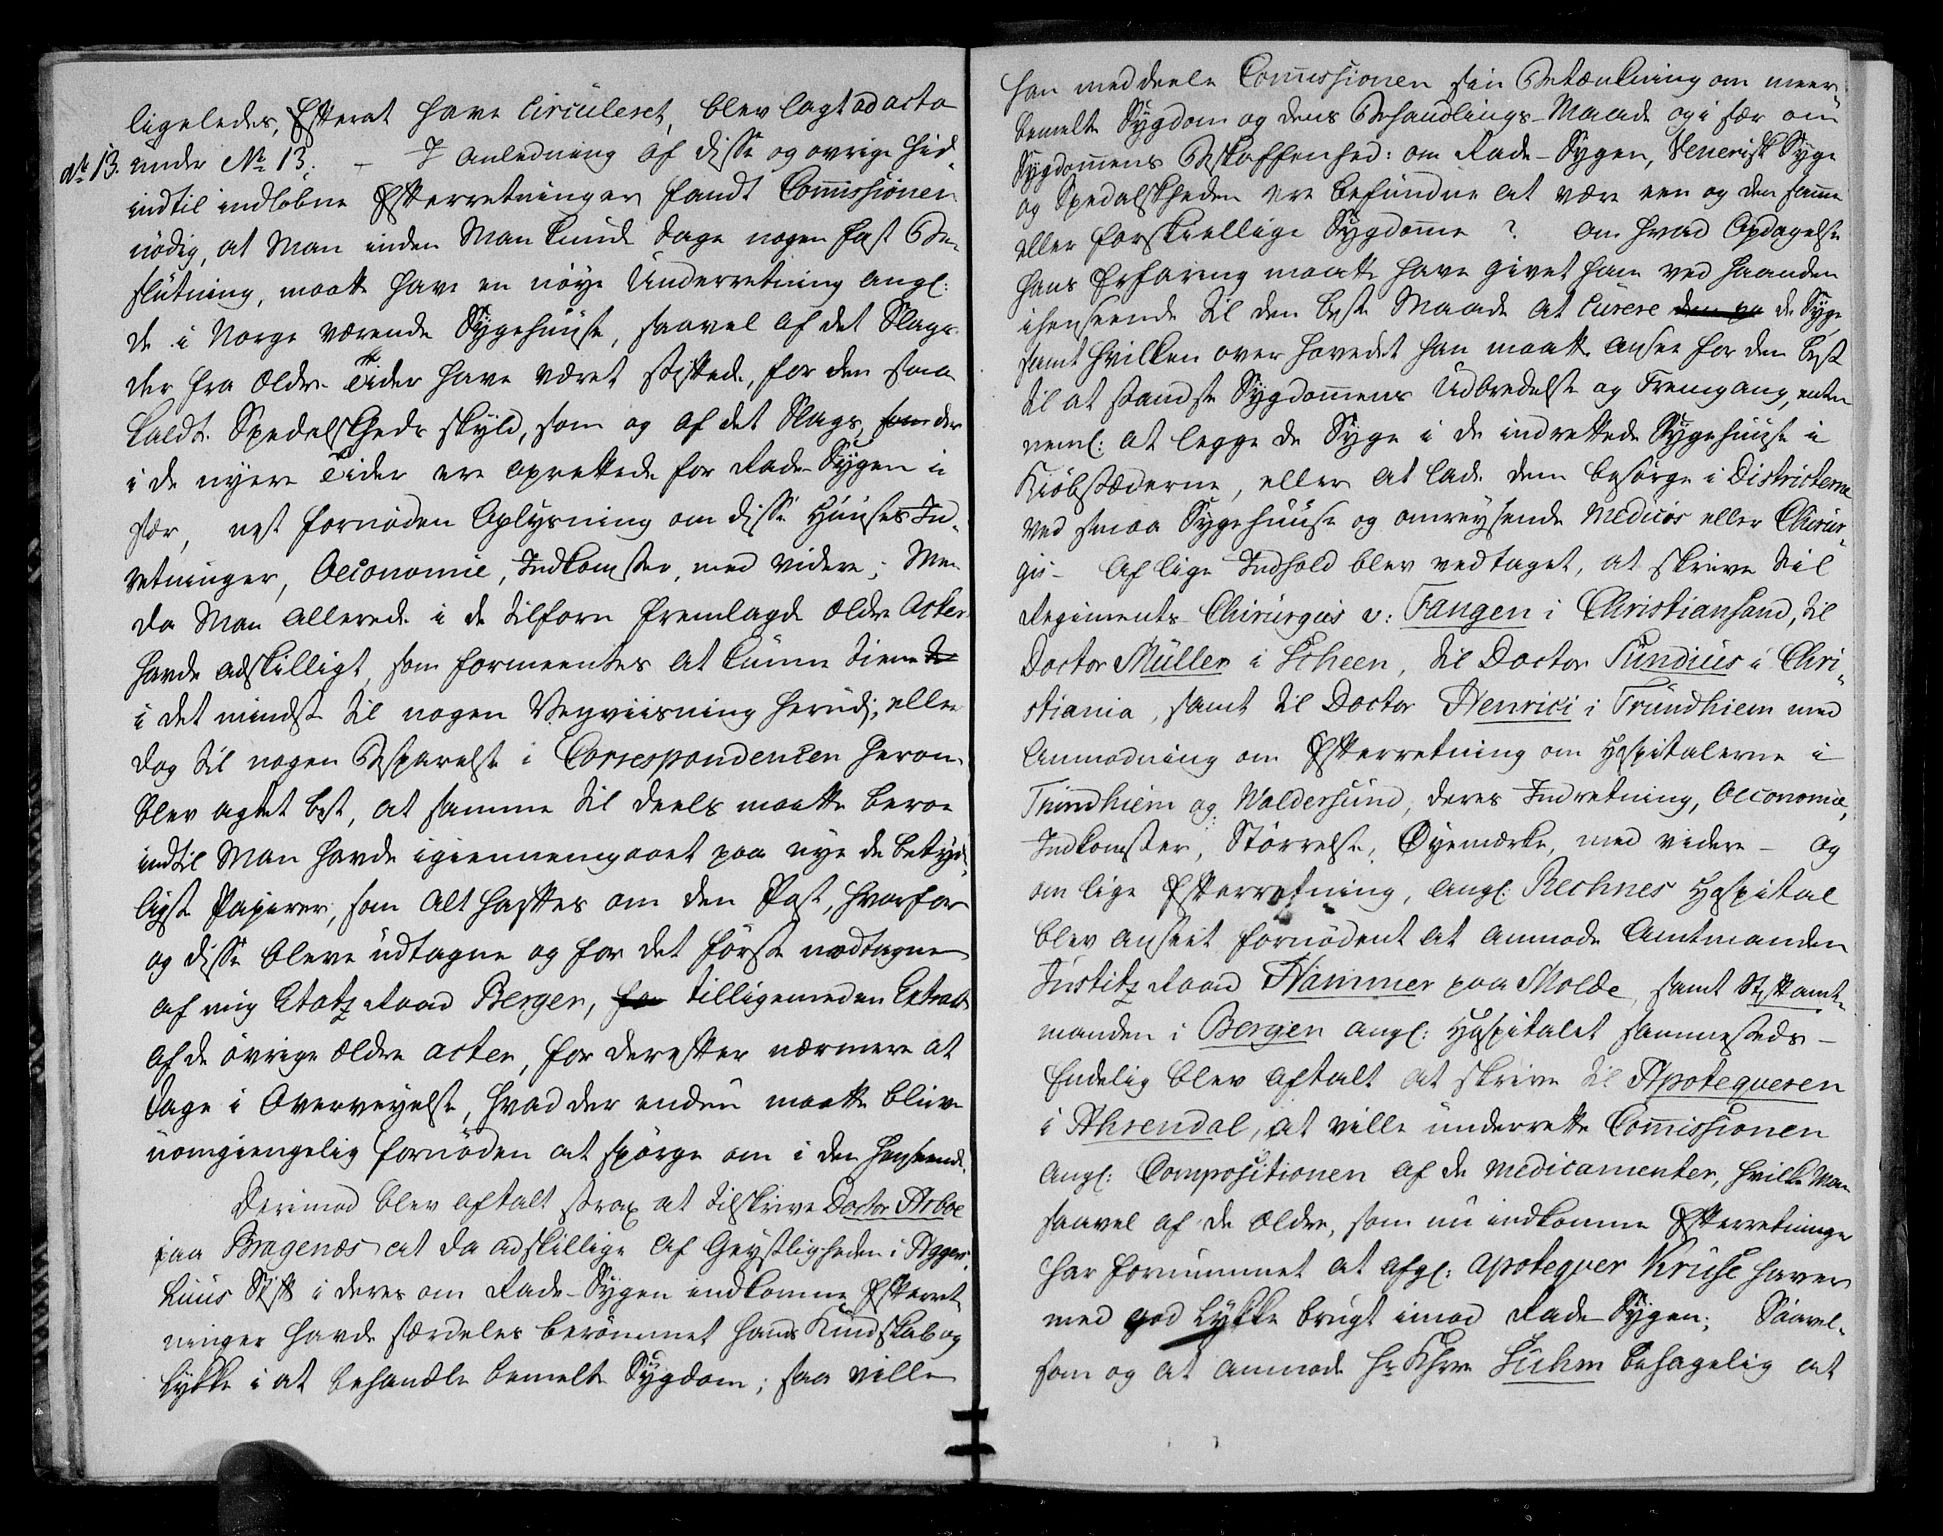 ligeledes, Efterat have circuleret, blev lagt ad acta
No 13. under No 13. – I anledning af disse og øvrige hid-
indtil indløbne Efterretninger fandt Commissionen
nödig, at Man inden Man kunde tage nogen fast Be-
slutning, maatte have en nöye Underretning angl:
de i Norge værende Sygehuuse, saavel af det Slags
der fra ældre Tider have været stiftede, for den saa
kaldte Spedalskheds skyld, som og af det Slags, som der
i de nyere Tider ere oprettede for Rade-Sygen i
sær, nest fornøden Oplysning om disse Huuses Ind-
retninger, Oeconomie, Indkomster, med videre; Men
da Man allerede i de tilforn fremlagde ældre Acter
havde adskilligt, som formeentes at kunne tiene
i det mindste til nogen Veyviisning herudj, eller
dog til nogen Besparelse i Correspondencen herom
blev agtet best, at samme til deels maatte beroe
indtil Man havde igiennemgaaet paa nye de betyd-
ligste Papirer, som alt haftes om den Post, hvorfor
og disse bleve udtagne og for det første modtagne
af mig Etatz Raad Berger, for tilligemed en Extract
af de övrige ældre acter, for derefter nærmere at
tage i Overveyelse, hvad der endnu maatte blive
uomgiengelig fornöden at spörge om i den henseende.
Derimod blev aftalt strax at tilskrive Doctor Arboe
paa Bragenæs at da adskillige af Geystligheden i Agger-
huus Stift i deres om Rade-Sygen indkomne Efterret-
ninger havde særdeles berömmet hands Kundskab og
Lykke i at behandle bemelte Sygdom; saa ville
han meddeele Commissionen sin Betænkning om meer-
bemelte Sygdom og dens Behandlings-Maade og i sær om
Sygdommens Beskaffenhed: om Rade-Sygen, Venerisk Syge
og Spedalskheden ere befundne at være een og den samme
eller forskiellige Sygdomme? Om hvad Opdagelse
hans Erfaring maatte have givet ham ved haanden
i henseende til den beste Maade at curere den paa de Syge
samt hvilken over hovedet han maatte ansee for den best
til at standse Sygdommens Udbredelse og Fremgang, enten
neml: at legge de Syge i de indrettede Sygehuuse i
Kiöbstæderne, eller at lade dem besörge i Districterne
ved smaa Sygehuuse og omreysende Medicos eller Chirur-
gis – Af lige Indhold blev vedtaget, at skrive til
Regiments Chirurgus v: Fangen i Christiansand, til
Doctor Müller i Scheen, til Doctor Tundius i Chri-
stiania, samt til Doctor Henrici i Trundhiem med
Anmodning om Efterretning om Hospitalerne i
Trundhiem og Woldersund, deres Indretning, Oeconomie,
Indkomster, Störrelse, Öyemærke, med videre – og
om lige Efterretning, angl: Rechnes Hospital
blev anseet fornødent at anmode Amtmanden
Justitz Raad Hammer paa Molde, samt Stiftamt-
manden i Bergen angl: Hospitalet sammesteds –
Endelig blev aftalt at skrive til Apotequeren
i Ahrendal, at ville underrette Commissionen
angl: Compositionen af de medicamenter, hvilke Man
saavel af de ældre, som nu indkomne Efterretninger
har fornummet at afgl: apotequer Kruse haver
med god Lykke brugt imod Rade-Sygen; Saavel-
som og at anmode Hr Khrr Suhm behagelig at